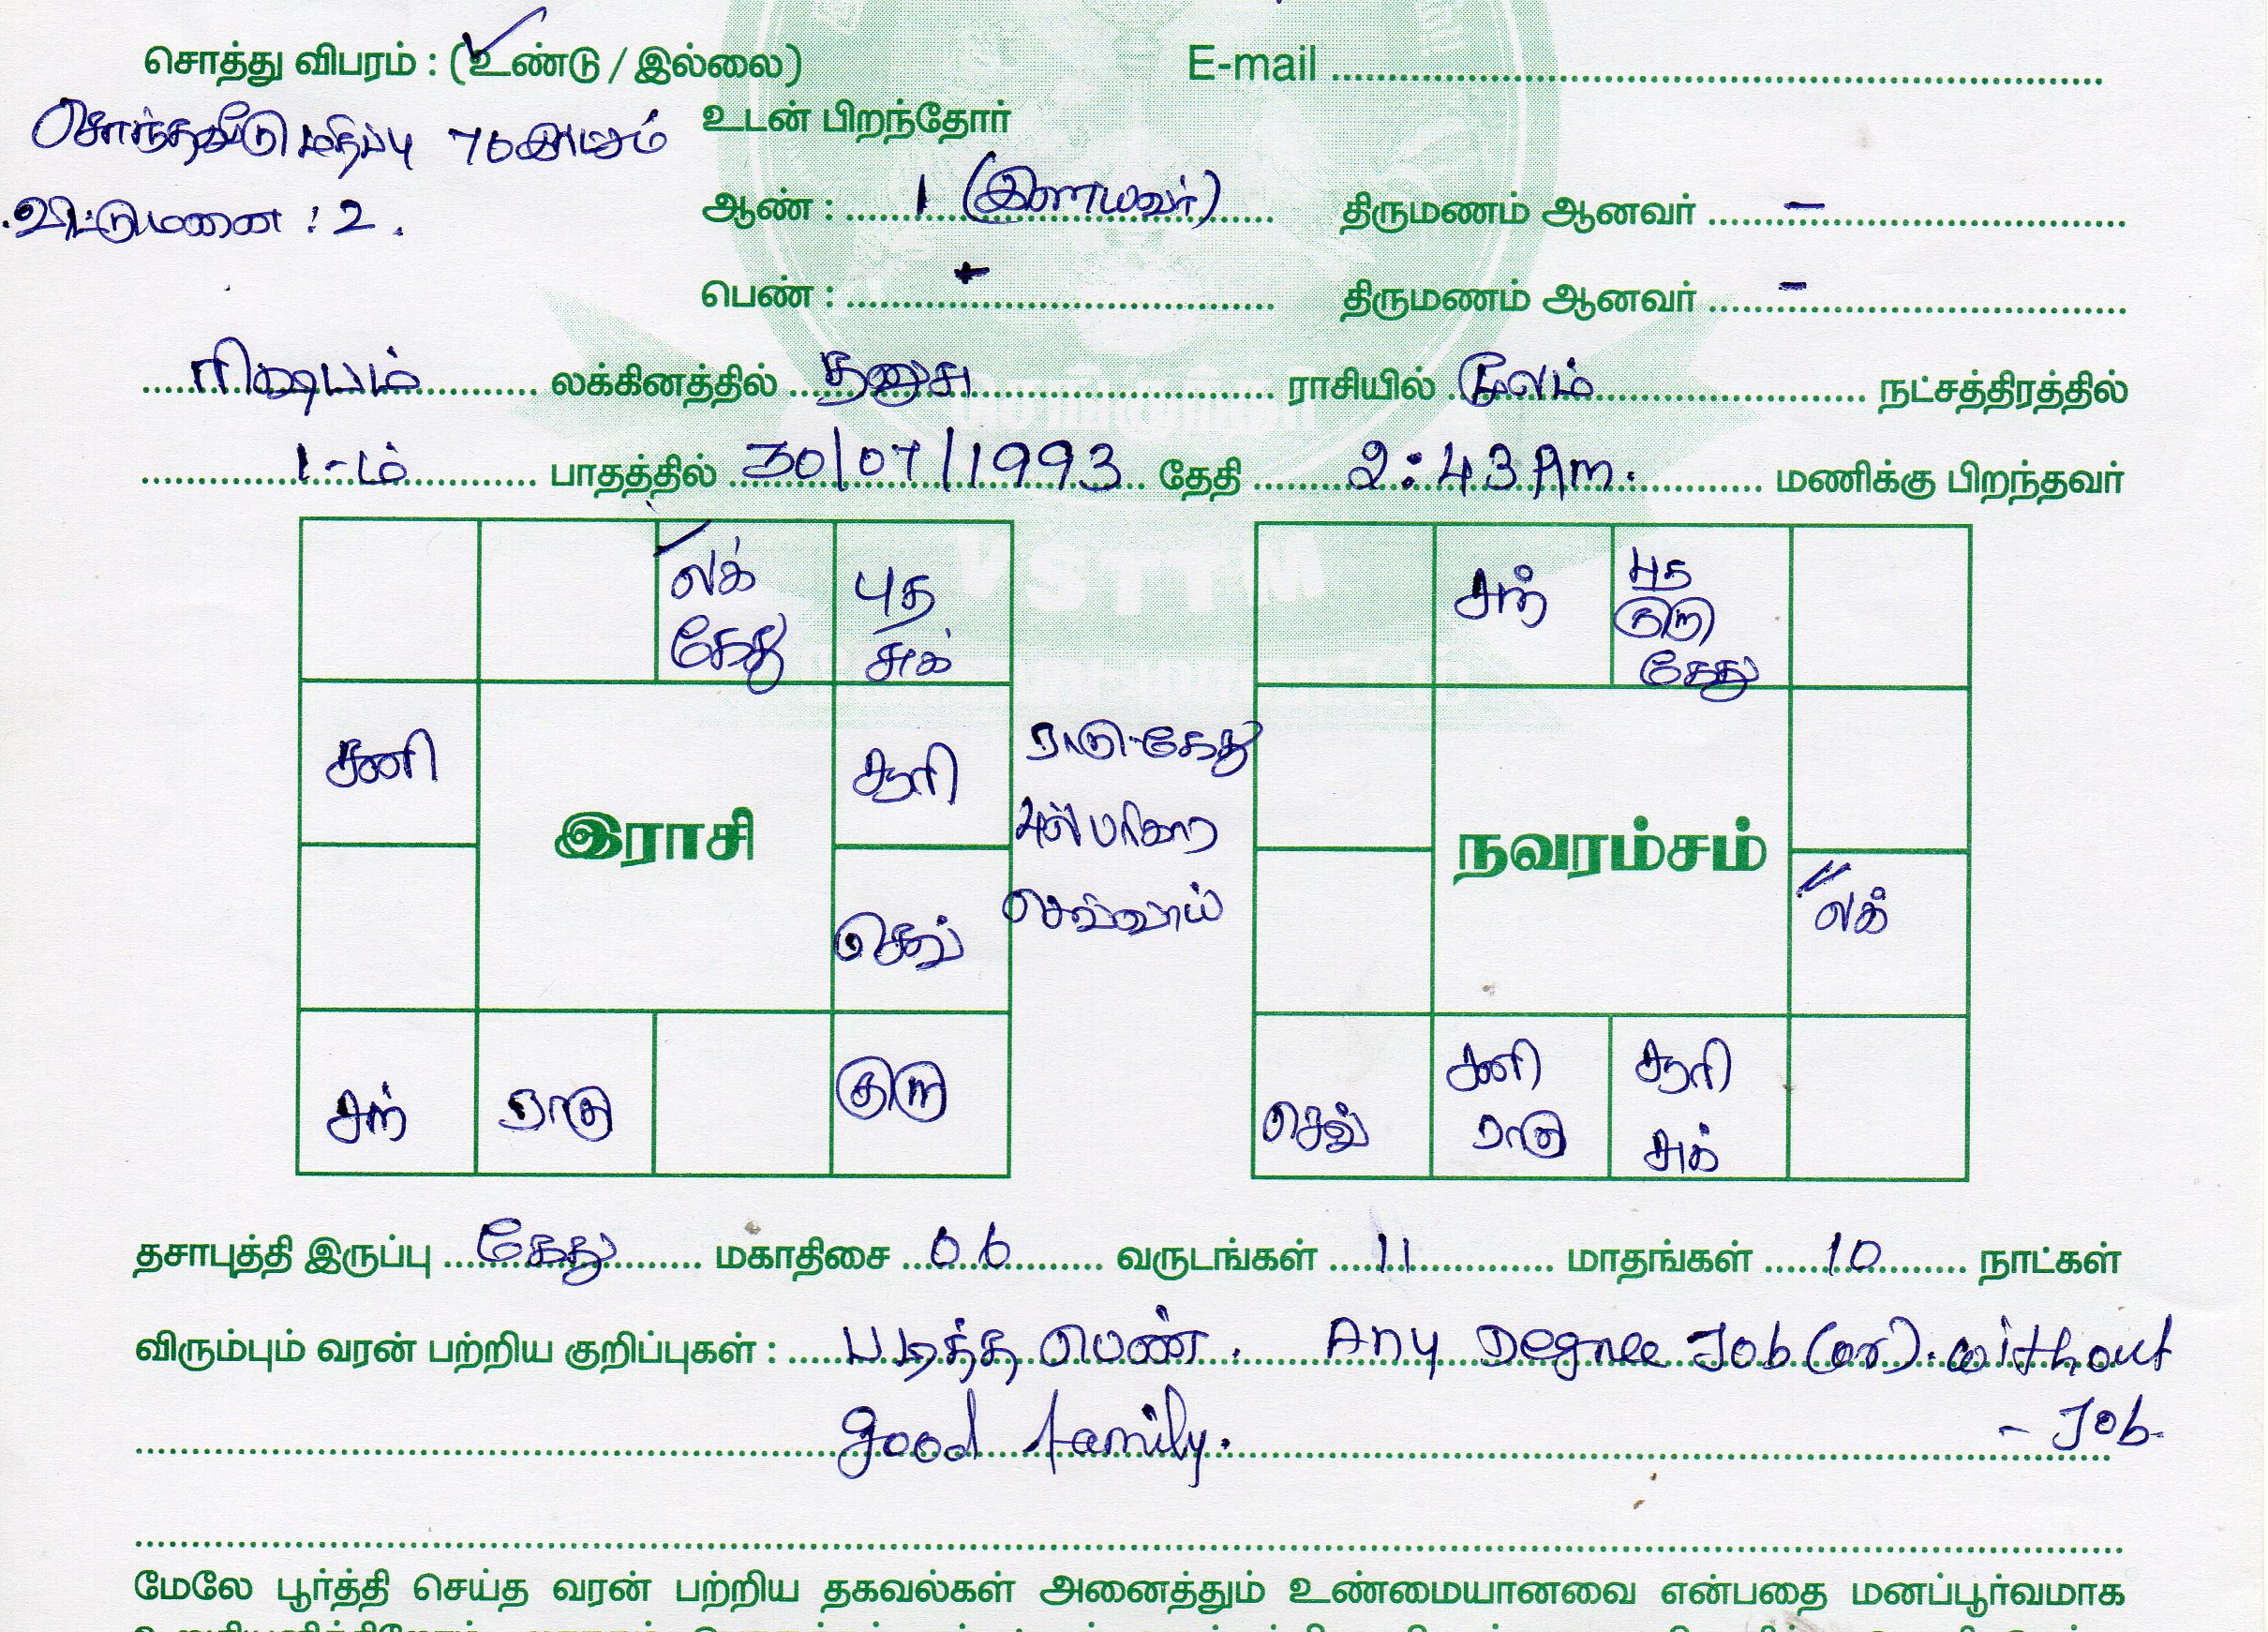 சொத்து விபரம் : (உண்டு / இல்லை) E-mail
சொந்தவீடு மதிப்பு 70 லட்சம் உடன் பிறந்தோர்
வீட்டுமனை : 2. ஆண் : 1 (இளையவர்) திருமணம் ஆனவர் –
பெண் : - திருமணம் ஆனவர் –
ரிஷபம் லக்கினத்தில் தனுசு ராசியில் மூலம் நட்சத்திரத்தில்
1-ம் பாதத்தில் 30/07/1993 தேதி 2:43 Am. மணிக்கு பிறந்தவர்
லக் புத சந் புத
கேது சுக் குரு
கேது
சனி சூரி ராகு-கேது
இராசி பரிகார நவரம்சம்
செவ் செவ்வாய் லக்
சந் ராகு குரு செவ் சனி சூரி
ராகு சுக்
தசாபுத்தி இருப்பு கேது மகாதிசை 06 வருடங்கள் 11 மாதங்கள் 10 நாட்கள்
விரும்பும் வரன் பற்றிய குறிப்புகள் : படித்த பெண். Any Degree Job (or). without
good family. – Job
மேலே பூர்த்தி செய்த வரன் பற்றிய தகவல்கள் அனைத்தும் உண்மையானவை என்பதை மனப்பூர்வமாக